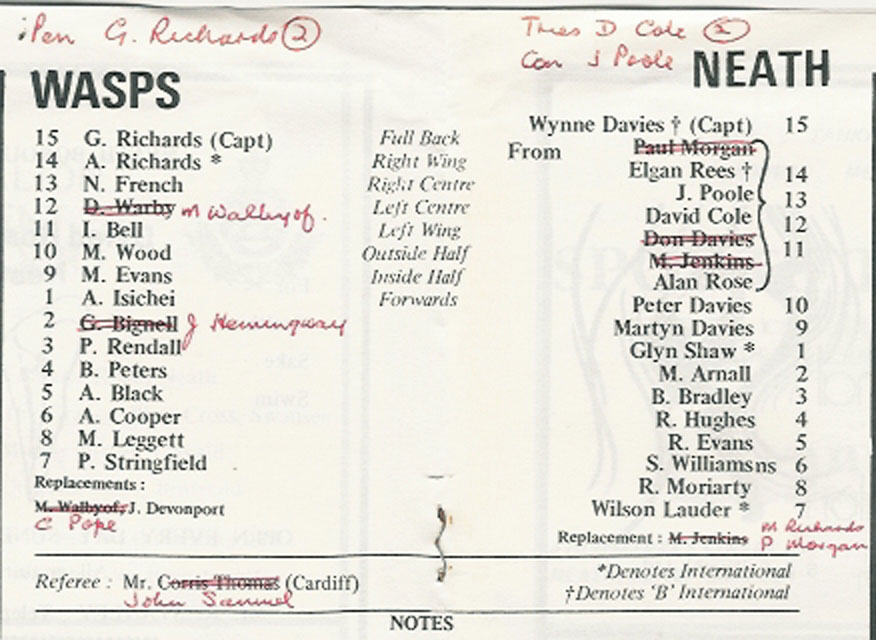 Pen G. Richards (2)
Tries D Cole (2)
Con J Poole
WASPS
NEATH
15 G. Richards (Capt)
14 A. Richards *
13 N. French
12 D. Warby M Walbyof.
11 I. Bell
10 M. Wood
9 M. Evans
1 A. Isichei
2 G. Bignell J Hemingway
3 P. Rendall
4 B. Peters
5 A. Black
6 A. Cooper
8 M. Leggett
7 P. Stringfield
Replacements :
M. Walbyof, J. Devonport
C Pope
Full Back
Right Wing
Right Centre
Left Centre
Left Wing
Outside Half
Inside Half
Forwards
Wynne Davies † (Capt) 15
From Paul Morgan
Elgan Rees † 14
J. Poole 13
David Cole 12
Don Davies 11
M. Jenkins
Alan Rose
Peter Davies 10
Martyn Davies 9
Glyn Shaw * 1
M. Arnall 2
B. Bradley 3
R. Hughes 4
R. Evans 5
S. Williamsns 6
R. Moriarty 8
Wilson Lauder * 7
M Richards
Replacement : M. Jenkins P Morgan
Referee : Mr. Corris Thomas (Cardiff)
John Samuel
*Denotes International
†Denotes 'B' International
NOTES